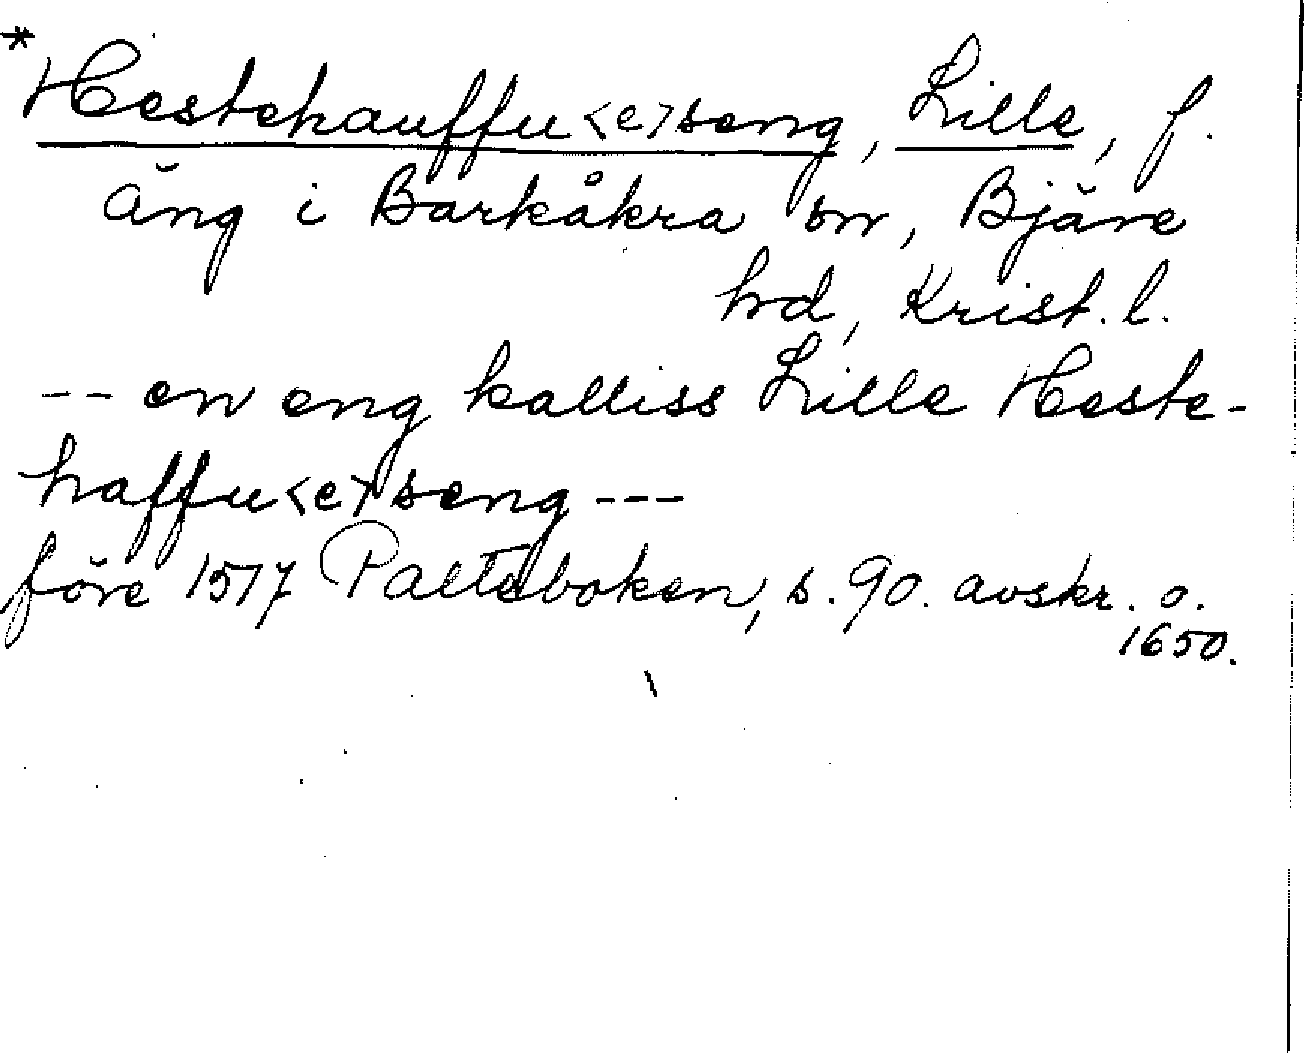 *Hestehauffu<e>seng, Lille, f.
äng i Barkåkra sn, Bjäre
hd, Krist. l.
-- en eng kalliss Lille Heste-
haffu<e>seng ---
före 1517 Palteboken, s. 90. avskr. o.
1650.